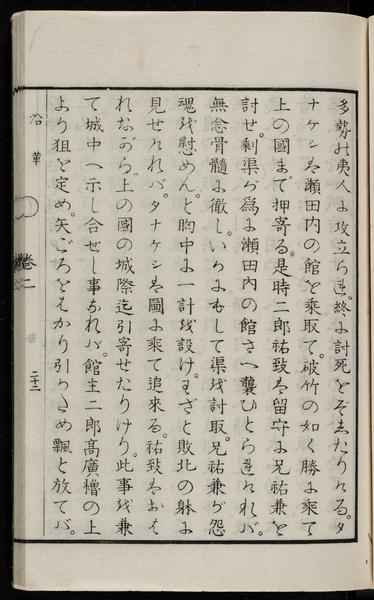 多勢の夷人に攻立られ。終に討死をぞゑたりける。タ
ナケシは瀬田内の館を乗取て。破竹の如く勝に乗て
上の國まで押寄る。是時二郎祐致は留守に兄祐兼を
討せ。剰渠が為に瀬田内の館さへ襲ひとられければ。
無念骨髄に徹し。いかにもして渠を討取。兄祐兼が怨
魂を慰めんと胸中に一計を設け。わざと敗北の躰に
見せければ。タナケシは圖に乗て追來る。祐致はおは
れながら。上の國の城際迄引寄せたりけり。此事を兼
て城中へ示し合せし事なれば。館主二郎高廣櫓の上
より狙を定め。矢ごろをはかり引かため飄と放てば。
沿革
卷二
二十二